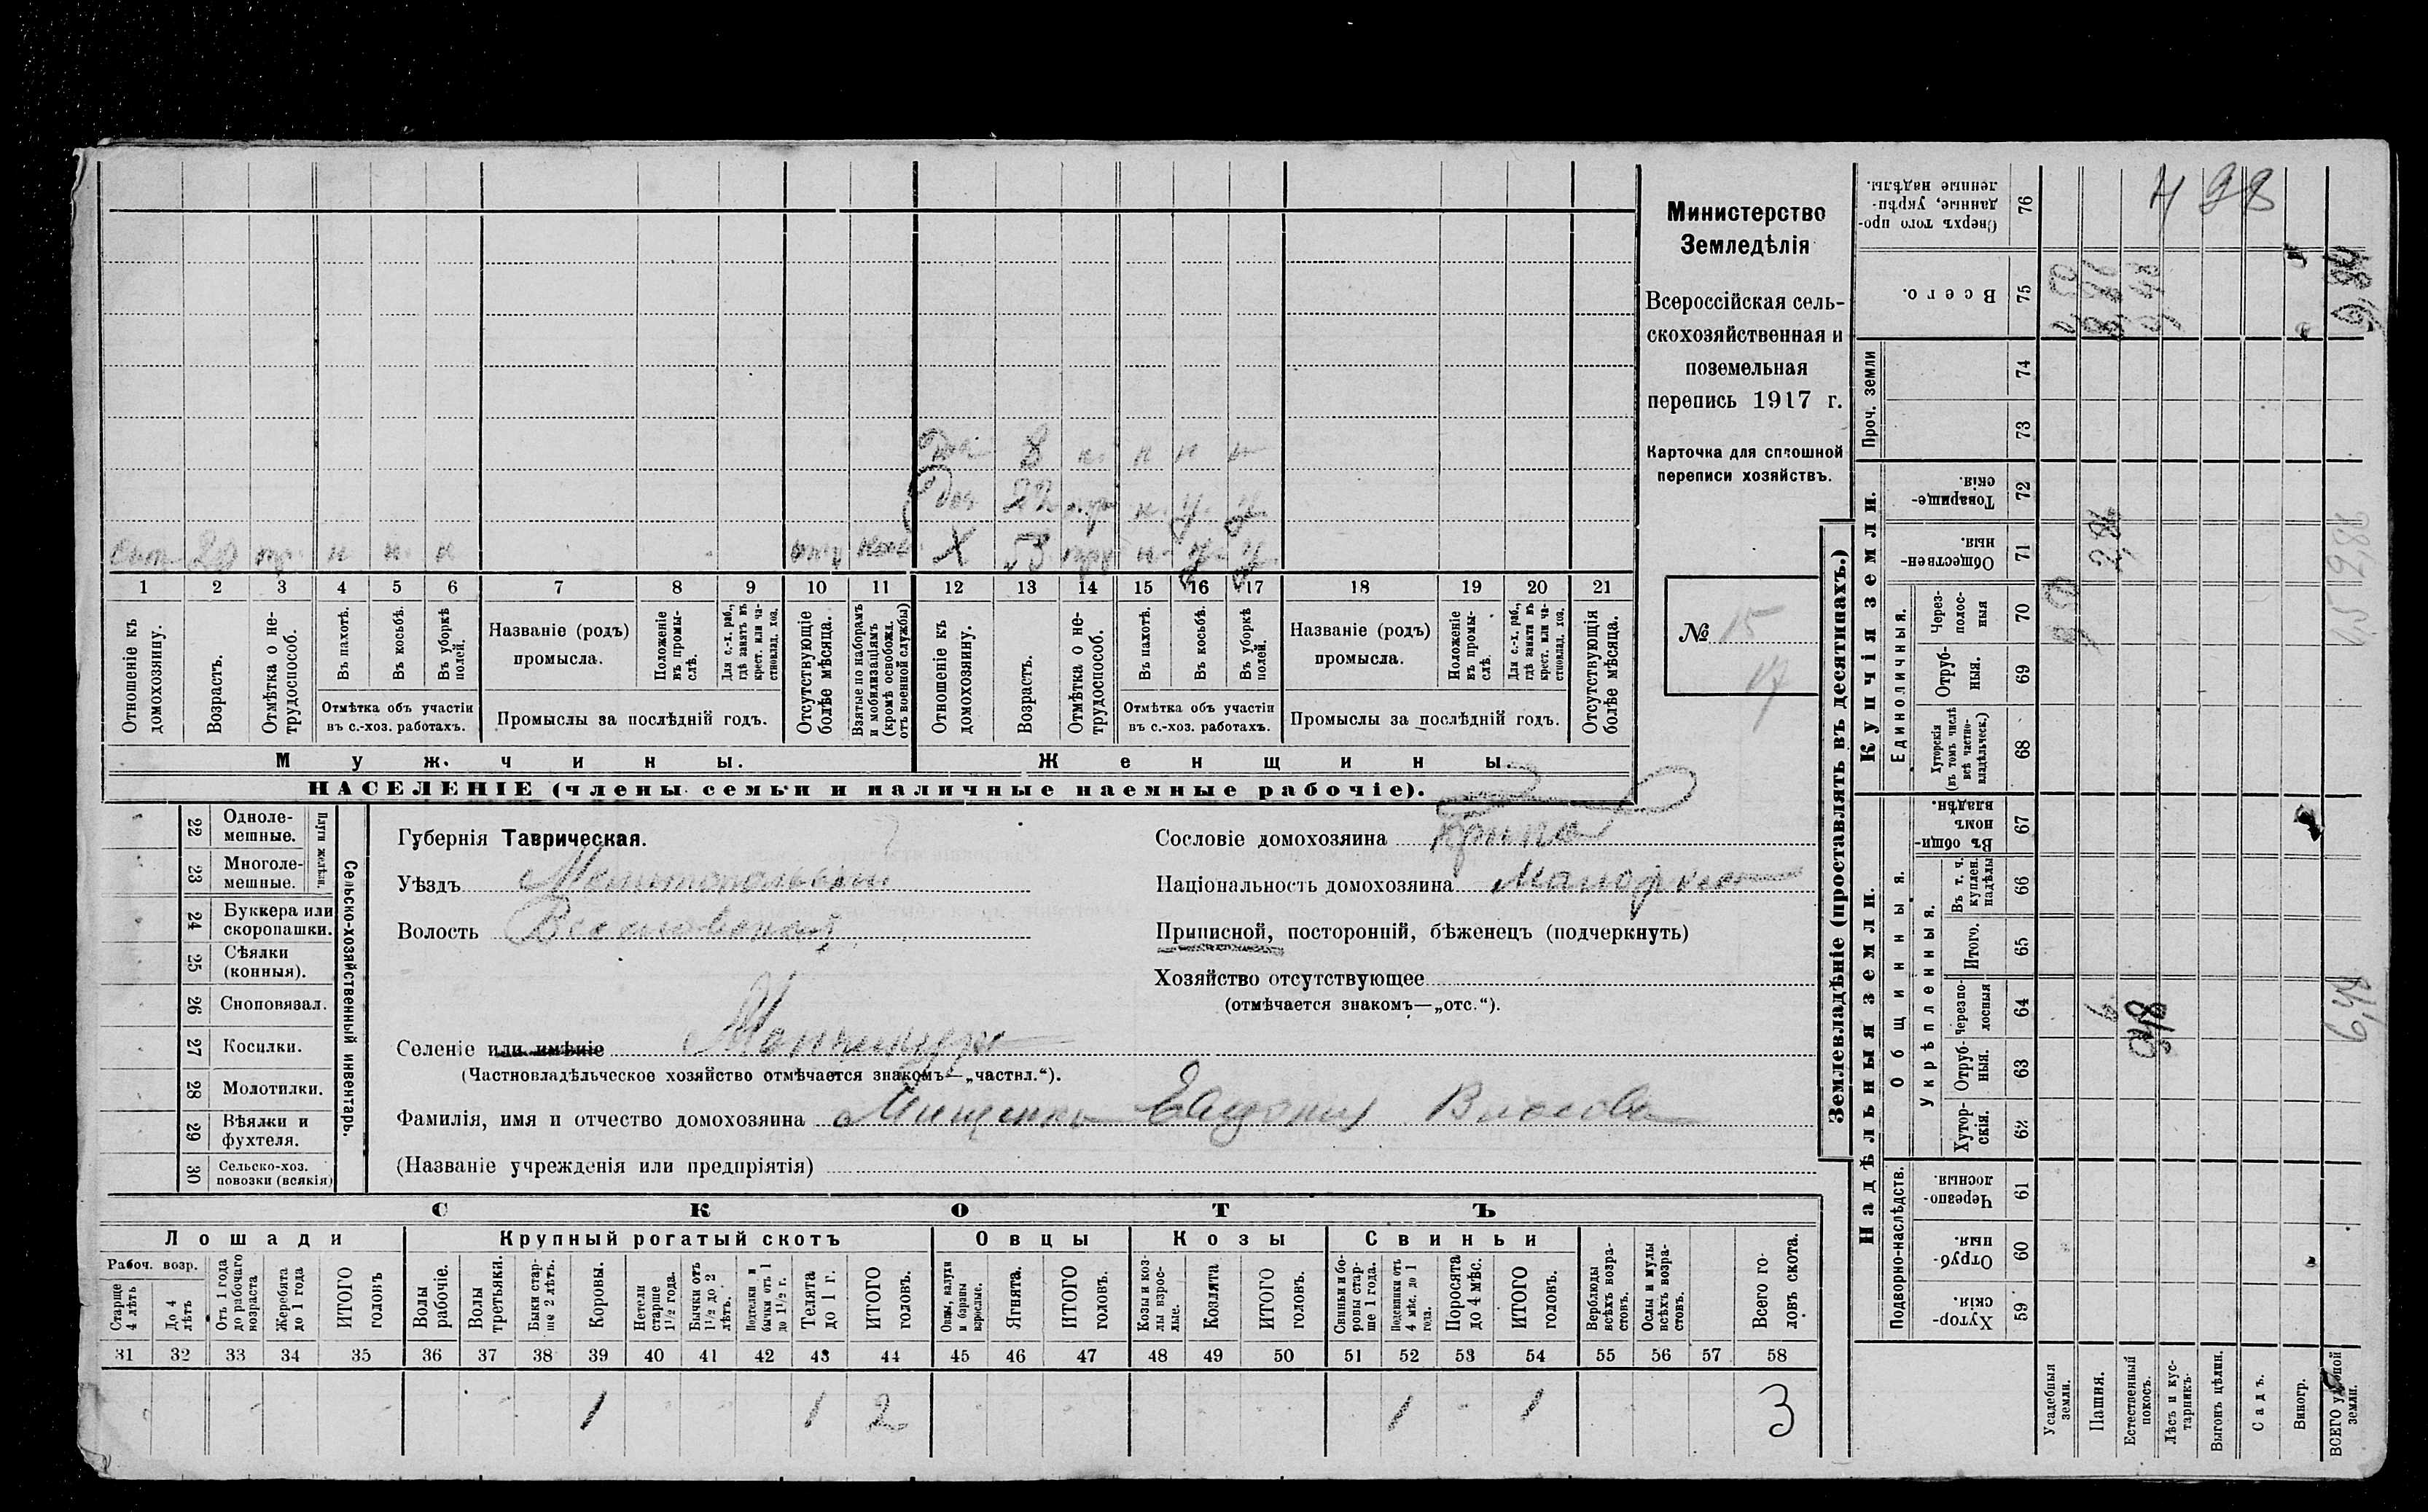 Министерство
Земледѣлія
Всероссійская сель-
скохозяйственная и
поземельная
перепись 1917 г.
Карточка для сплошной
переписи хозяйствъ.
№ 15
17
Дочь 8 н н н н
Доч 22 н у у
Сынъ 20 н н н
Х 53 н у у
1 2 3 4 5 6 7 8 9 10 11 12 13 14 15 16 17 18 19 20 21
Отношеніе къ домохозяину.
Возрастъ.
Отмѣтка о не-трудоспособ.
Въ пахотѣ.
Въ косьбѣ.
Въ уборкѣ полей.
Отмѣтка объ участіи въ с.-хоз. работахъ.
Названіе (родъ) промысла.
Положеніе въ промы-слѣ.
Для с.-х. раб., гдѣ занятъ въ крест. или ча-стновлад. хоз.
Промыслы за послѣдній годъ.
Отсутствующіе болѣе мѣсяца.
Взятые по наборамъ и мобилизаціямъ (кромѣ освобожд. отъ военной службы)
Отношеніе къ домохозяину.
Возрастъ.
Отмѣтка о не-трудоспособ.
Въ пахотѣ.
Въ косьбѣ.
Въ уборкѣ полей.
Отмѣтка объ участіи въ с.-хоз. работахъ.
Названіе (родъ) промысла.
Положеніе въ промы-слѣ.
Для с.-х. раб., гдѣ заняты въ крест. или ча-стновлад. хоз.
Промыслы за послѣдній годъ.
Отсутствующія болѣе мѣсяца.
Мужчины.
Женщины.
НАСЕЛЕНІЕ (члены семьи и наличные наемные рабочіе).
22 Одноле-мешные.
23 Многоле-мешные.
Плуги желѣзн.
24 Буккера или скоропашки.
25 Сѣялки (конныя).
26 Сноповязал.
27 Косилки.
28 Молотилки.
29 Вѣялки и фухтеля.
30 Сельско-хоз. повозки (всякія)
Сельско-хозяйственный инвентарь.
Губернія Таврическая.
Уѣздъ Мелитопольскій
Волость Веселовская
Селеніе или имѣніе
(Частновладѣльческое хозяйство отмѣчается знакомъ—„частвл.“).
Фамилія, имя и отчество домохозяина Мищенко Евдокія Власова
(Названіе учрежденія или предпріятія)
Сословіе домохозяина
Національность домохозяина Малорос
Приписной, посторонній, бѣженецъ (подчеркнуть)
Хозяйство отсутствующее
(отмѣчается знакомъ—„отс.“).
СКОТЪ
Лошади
Крупный рогатый скотъ
Овцы
Козы
Свиньи
Рабоч. возр.
Старше 4 лѣтъ
До 4 лѣтъ
Отъ 1 года до рабочаго возраста
Жеребята до 1 года
ИТОГО головъ
Волы рабочіе.
Волы третьяки.
Быки стар-ше 2 лѣтъ.
Коровы.
Нетели старше 1½ года.
Бычки отъ 1½ до 2 лѣтъ.
Подтелки и бычки отъ 1 до 1½ г.
Телята до 1 г.
ИТОГО головъ.
Овцы, валухи и бараны взрослые.
Ягнята.
ИТОГО головъ.
Козы и коз-лы взрос-лые.
Козлята
ИТОГО головъ.
Свиньи и бо-ровы стар-ше 1 года.
Подсвинки отъ 4 мѣс. до 1 года.
Поросята до 4 мѣс.
ИТОГО головъ.
Верблюды всѣхъ возра-стовъ.
Ослы и мулы всѣхъ возра-стовъ.
Всего го-ловъ скота.
31 32 33 34 35 36 37 38 39 40 41 42 43 44 45 46 47 48 49 50 51 52 53 54 55 56 57 58
1 1 2 1 1 3
Землевладѣніе (проставлять въ десятинахъ.)
Надѣльныя земли.
Купчія земли.
Проч. земли
Подворно-наслѣдств.
Общинныя.
Укрѣпленныя.
Единоличныя.
59 Хутор-скія.
60 Отруб-ныя.
61 Черезпо-лосныя.
62 Хутор-скія.
63 Отруб-ныя.
64 Черезпо-лосныя
65 Итого.
66 Въ т. ч. куплен. надѣлы
67 Въ общи-номъ владѣн.
68 Хуторскія (въ томъ числѣ всѣ частно-владѣльческ.)
69 Отруб-ныя.
70 Через-полос-ныя
71 Обществен-ныя.
72 Товарище-скія.
73
74
75 Всего.
76 Сверхъ того про-данные, укрѣп-ленные надѣлы.
498
2,86
2,86
6
6,48
9,84
Усадебныя земли.
Пашня.
Естественный покосъ.
Лѣсъ и кус-тарникъ.
Выгонъ цѣлин.
Садъ.
Виногр.
ВСЕГО удобной земли.